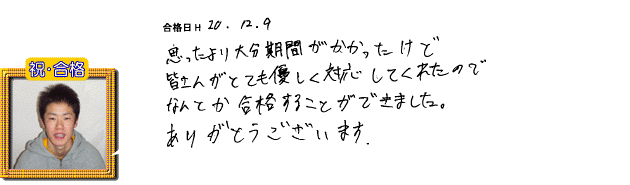 合格日 H 20.12.9
思ったより大分期間がかかったけど
皆さんがとても優しく対応してくれたので
なんとか合格することができました。
ありがとうございます.
祝・合格